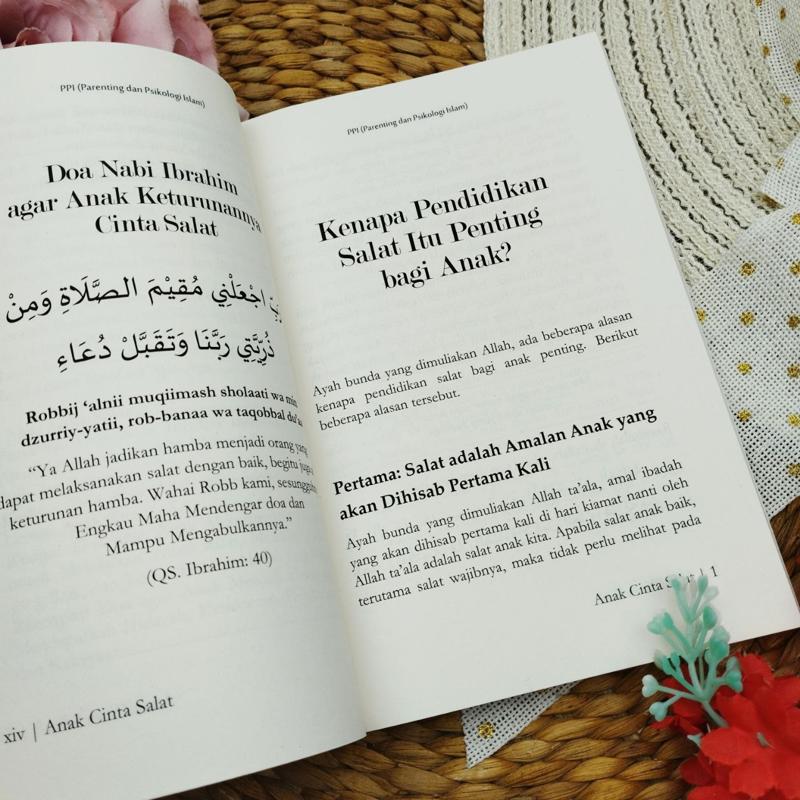 PPI (Parenting dan Psikologi Islam)
Doa Nabi Ibrahim
agar Anak Keturunannya
Cinta Salat
اجْعَلْنِي مُقِيْمَ الصَّلَاةِ وَمِنْ
ذُرِّيَّتِي رَبَّنَا وَتَقَبَّلْ دُعَاءِ
Robbij ‘alnii muqiimash sholaati wa min
dzurriy-yatii, rob-banaa wa taqobbal
“Ya Allah jadikan hamba menjadi orang yang
dapat melaksanakan salat dengan baik, begitu
keturunan hamba. Wahai Robb kami,
Engkau Maha Mendengar doa dan
Mampu Mengabulkannya.”
(QS. Ibrahim: 40)
xiv | Anak Cinta Salat
PPI (Parenting dan Psikologi Islam)
Kenapa Pendidikan
Salat Itu Penting
bagi Anak?
Ayah bunda yang dimuliakan Allah, ada beberapa alasan
kenapa pendidikan salat bagi anak penting. Berikut
beberapa alasan tersebut.
Pertama: Salat adalah Amalan Anak yang
akan Dihisab Pertama Kali
Ayah bunda yang dimuliakan Allah ta’ala, amal ibadah
yang akan dihisab pertama kali di hari kiamat nanti oleh
Allah ta’ala adalah salat anak kita. Apabila salat anak baik,
terutama salat wajibnya, maka tidak perlu melihat pada
Anak Cinta Salat | 1